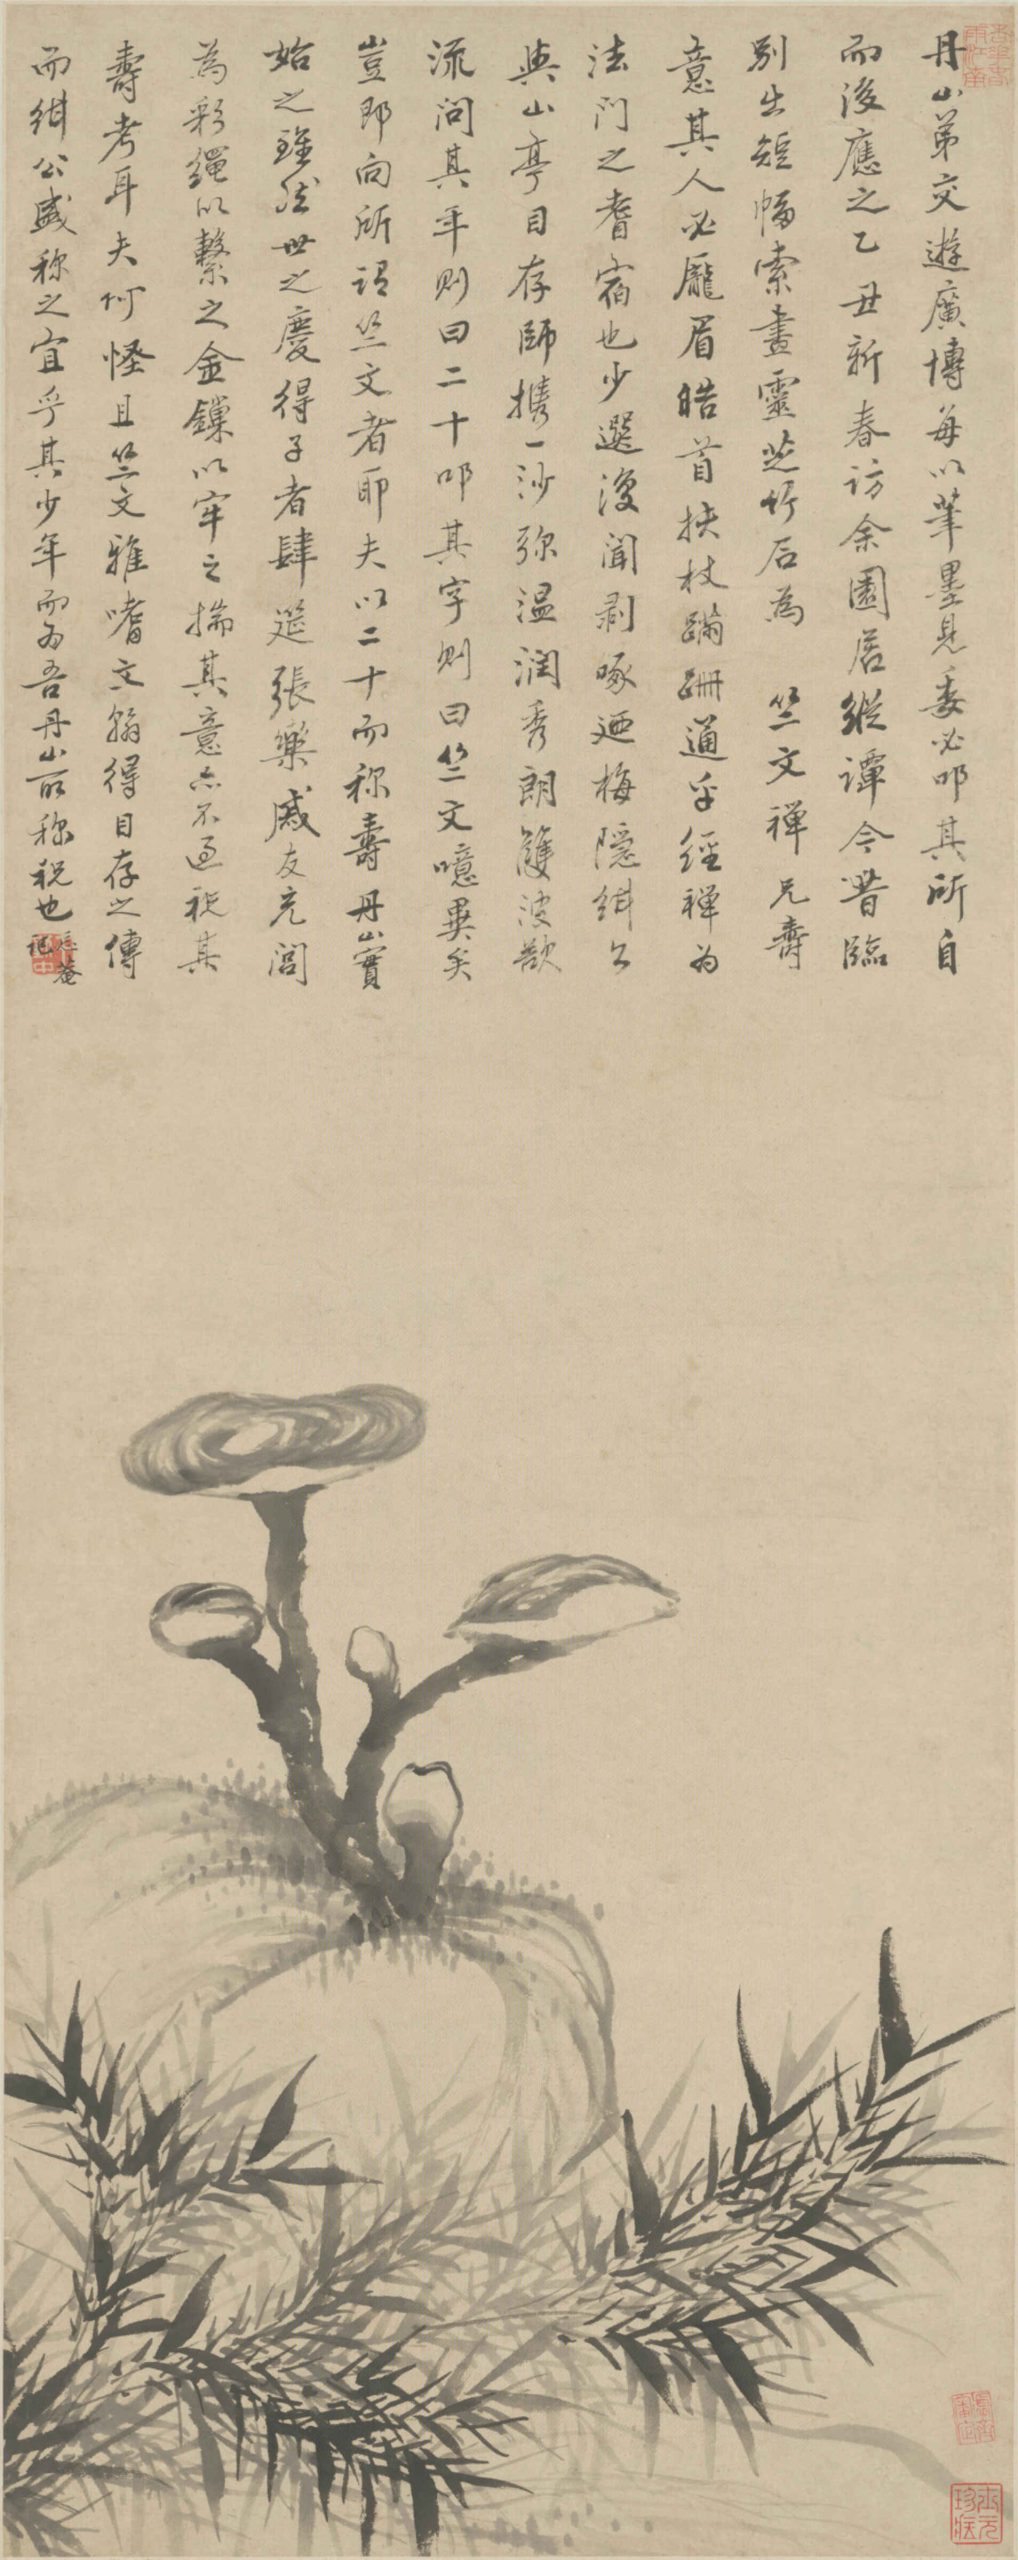 丹山弟交遊廣博每以筆墨見委必叩其所自
而後應之乙丑新春访余園居縱譚今昔臨
別出短幅索畫靈芝竹石為 竺文禅兄壽
意其人必龐眉皓首扶杖蹒跚通乎經禅为
法门之耆宿也少選復闻剥啄迺梅隱缉公
與山亭目存師攜一沙弥温润秀朗護波歠
流问其年则曰二十叩其字则曰竺文噫異矣
豈即向所谓竺文者耶夫以二十而称壽丹山實
始之雖然世之慶得子者肆筵張樂戚友充闾
為彩繩以繫之金鏁以牢之揣其意亦不過祝其
壽考耳夫何怪且竺文雅嗜文翰得目存之傳
而缉公盛称之宜乎其少年而为吾丹山所称祝也
菴
記